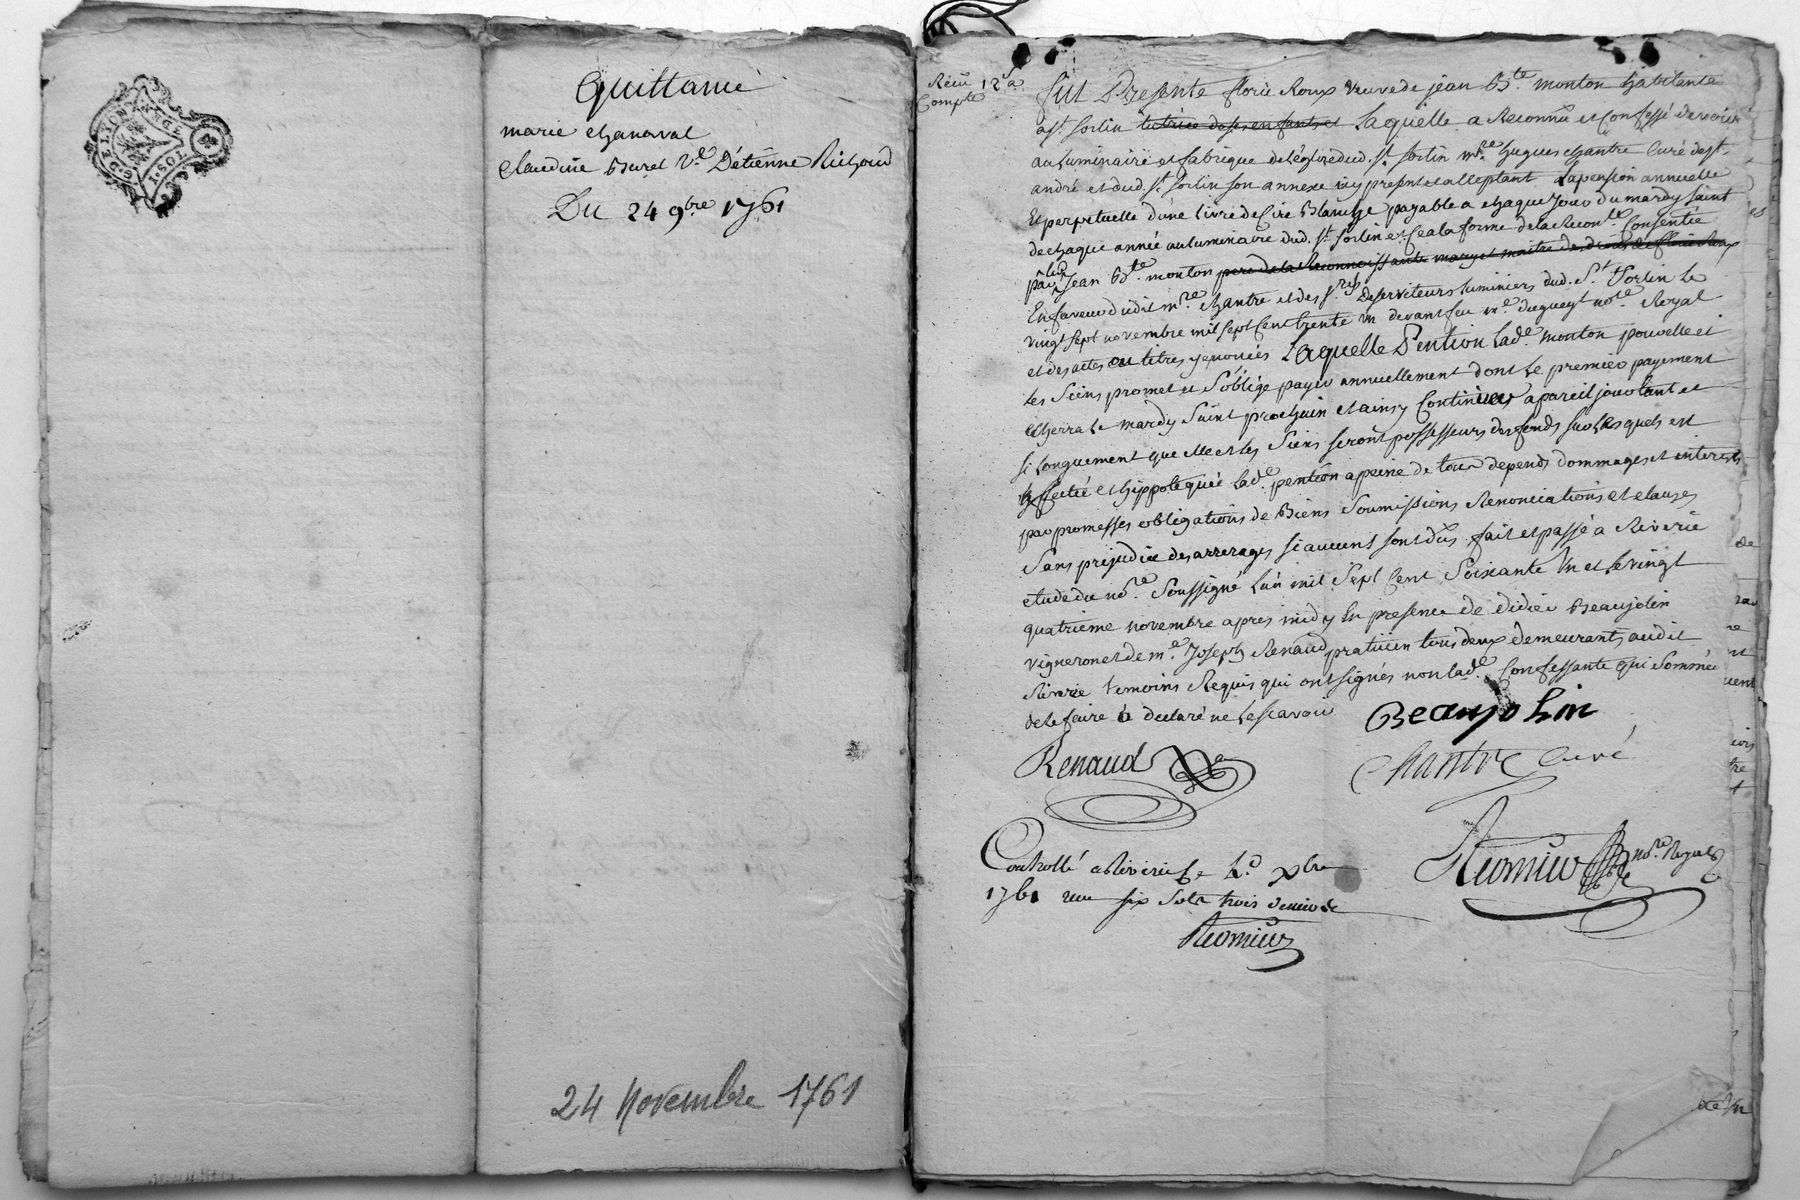 G. DE LYON
1. SOL
4
Quittance
marie chanaval
Claudine Buret Ve. D'étienne Richoud
Du 24 9bre 1761
24 Novembre 1761
Récu 12s a
Compte
fut Presente florie Roux veuve de jean Bte. monton habitante
a st. sorlin tutrice de ses enfants et Laquelle a Reconnu et Confessé devoir
au Luminaire et fabrique de l'église dud. st. sorlin mre. hugues chantre Curé de st.
andré et dud. st. sorlin son annexe icy present et acceptant La pension annuelle
Et perpetuelle d'une livre de Cire Blanche payable a chaque jour du mardy saint
de chaque année au luminaire dud. st. sorlin et Ce a la forme de la Reconce. Consentie
par led. jean Bte. monton pere de la Reconnoissante mary et maitre des droits de florie Roux
En faveur dudit mre. chantre et des srs. Desserviteurs luminiers dud. St. Sorlin le
vingt sept novembre mil sept Cent trente un devant feu me. dugueyt nore. Royal
et des actes ou titres y enoncés Laquelle Pention Lade. monton pour elle et
les Siens promet et s'oblige payer annuellement dont Le premier payement
Echerra Le mardy Saint prochain et ainsy Continuer a pareil jour tant et
si longuement que elle et les Siens seront possesseurs des fonds sur lesquels est
affectée et hippotequée Lade. pention a peine de tous depends dommages et interests
par promesses obligations de Biens Soumissions Renonciations et clauses
Sans prejudice des arrerages si aucuns sont dus. fait et passé a Riverie
etude du nore. Soussigné L'an mil Sept Cent Soixante Un et Le vingt
quatrieme novembre apres midy En presence de didier Beaujolin
vigneron et de me. Joseph Renaud praticien tous deux demeurants audit
Riverie temoins Requis qui ont signés non lade. Confessante qui Sommée
de le faire a declaré ne le scavoir
Beaujolin
Renaud
Chantre Curé
nore. Royal
Controllé a Riverie Le Xbre
1761 reçu six sols trois deniers